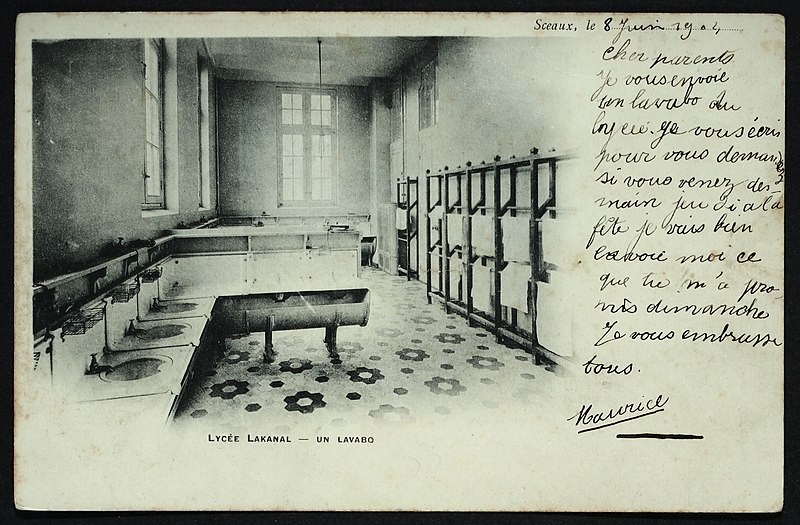 Sceaux, le 8 Juin 1904
Cher parents
Je vous envoie
un lavabo du
lycée. Je vous écris
pour vous demander
si vous venez de-
main jeudi a la
fête je vais bien
envoie moi ce
que tu m'a pro-
mis dimanche
Je vous embrasse
tous.
Maurice
LYCÉE LAKANAL — UN LAVABO